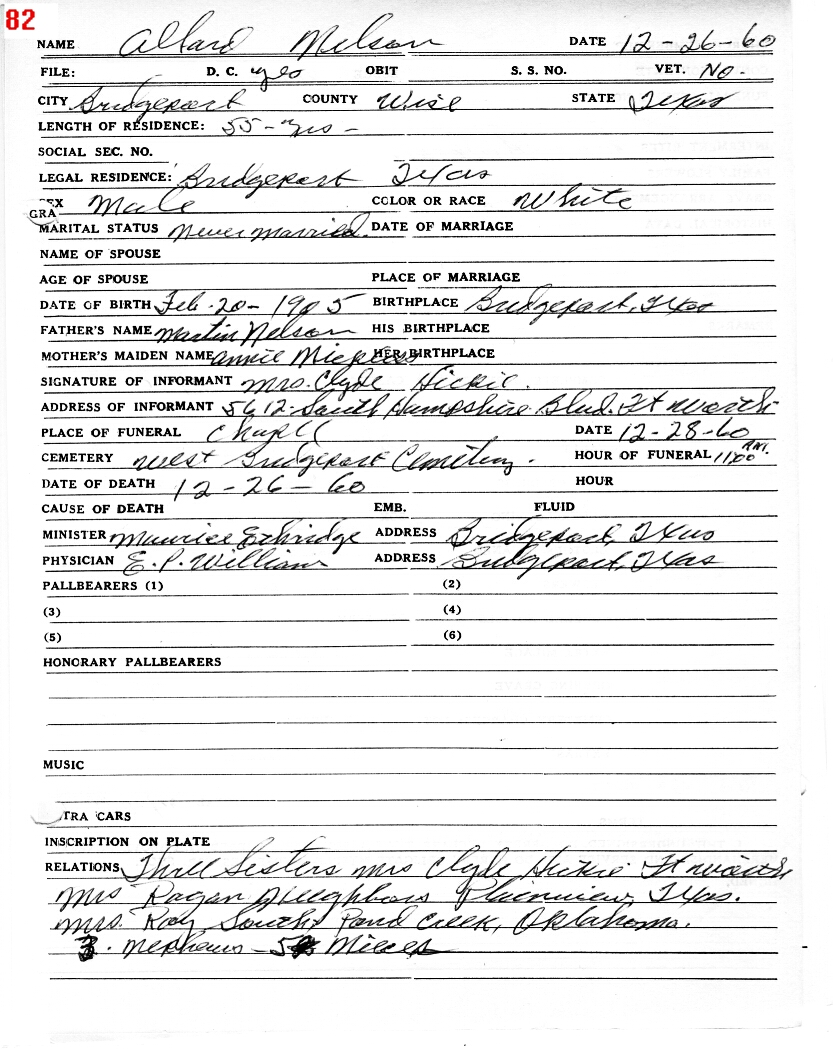 82
NAME Allard Nelson DATE 12-26-60
FILE: D. C. yes OBIT S. S. NO. VET. No.
CITY Bridgeport COUNTY Wise STATE Texas
LENGTH OF RESIDENCE: 55-yrs-
SOCIAL SEC. NO.
LEGAL RESIDENCE: Bridgeport Texas
SEX Male COLOR OR RACE White
GRA
MARITAL STATUS Never Married. DATE OF MARRIAGE
NAME OF SPOUSE
AGE OF SPOUSE PLACE OF MARRIAGE
DATE OF BIRTH Feb-20-1905 BIRTHPLACE Bridgeport, Texas
FATHER'S NAME Martin Nelson HIS BIRTHPLACE
MOTHER'S MAIDEN NAME Annie HER BIRTHPLACE
SIGNATURE OF INFORMANT Mrs. Clyde Hickie.
ADDRESS OF INFORMANT 5612 South Hampshire Blvd. Ft Worth
PLACE OF FUNERAL Chapel DATE 12-28-60
CEMETERY West Bridgeport Cemetery. HOUR OF FUNERAL 11:00 A.M.
DATE OF DEATH 12-26-60 HOUR
CAUSE OF DEATH EMB. FLUID
MINISTER Maurice Ethridge ADDRESS Bridgeport, Texas
PHYSICIAN E. P. William ADDRESS Bridgeport, Texas
PALLBEARERS (1) (2)
(3) (4)
(5) (6)
HONORARY PALLBEARERS
MUSIC
TRA CARS
INSCRIPTION ON PLATE
RELATIONS Three Sisters Mrs Clyde Hickie Ft Worth
Mrs Ragan Neighbors Plainview, Texas.
Mrs. Ray South Pond Creek, Oklahoma.
3. Nephews - 5 Nieces